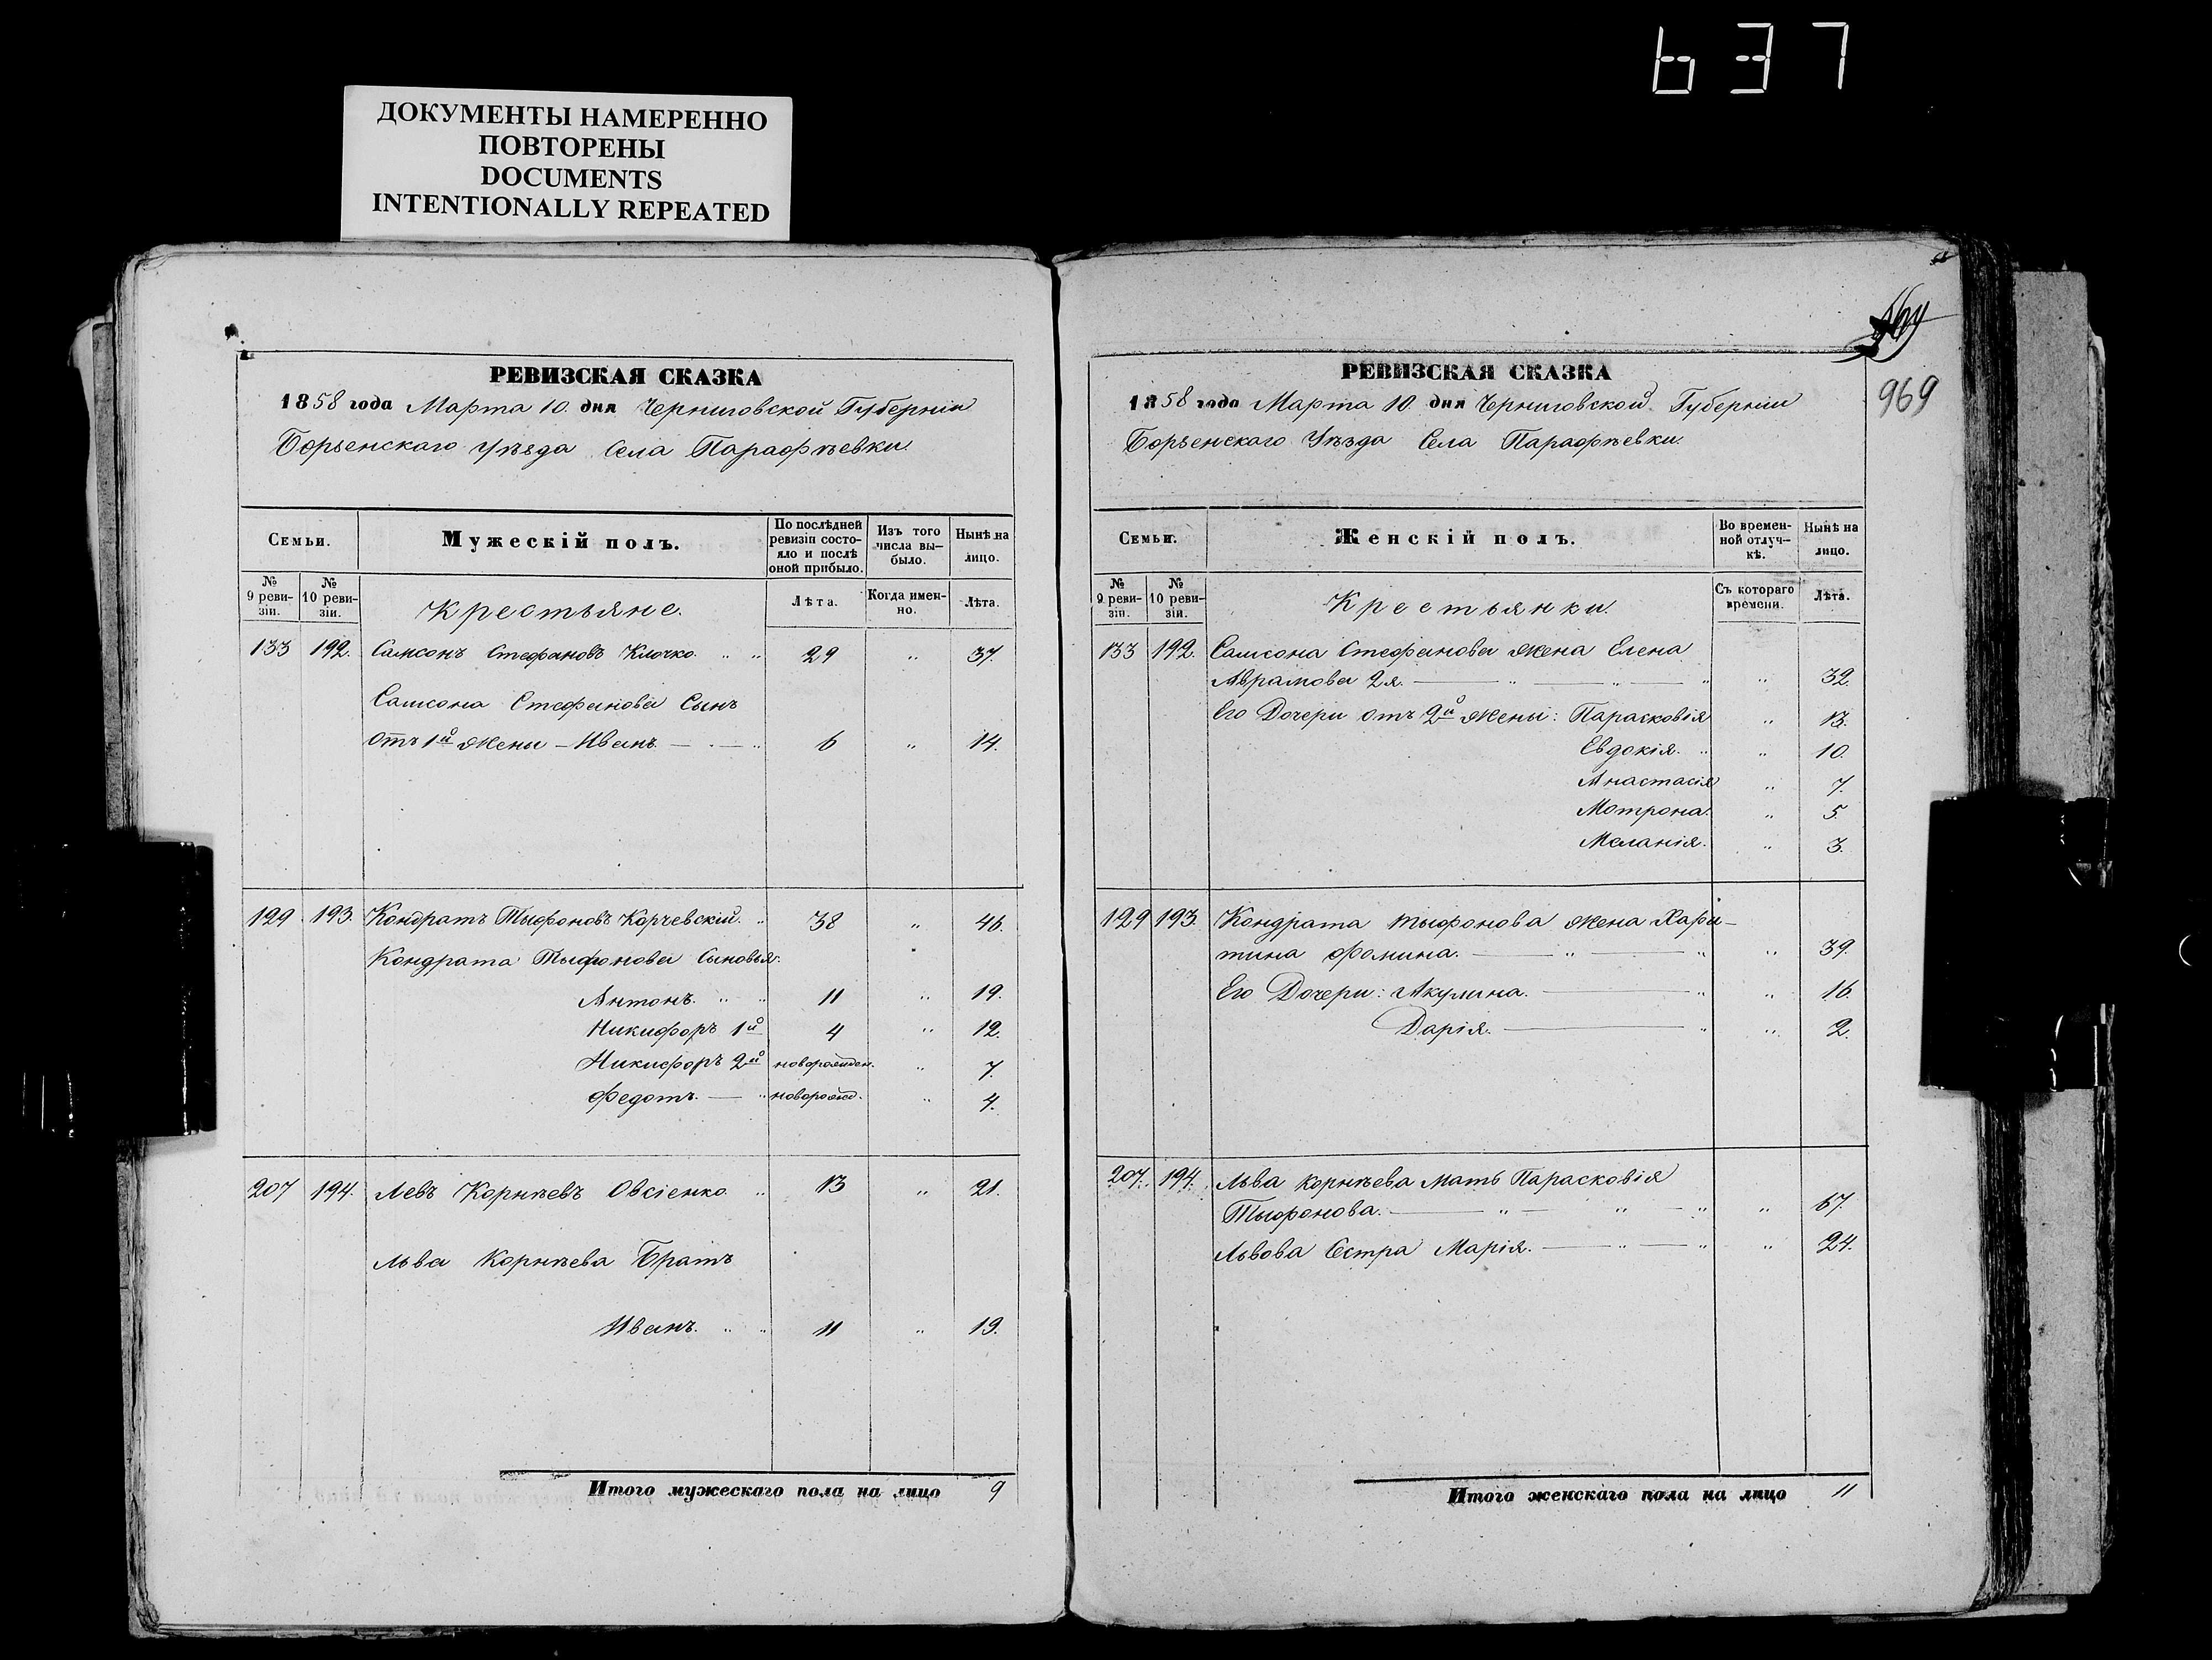 637
ДОКУМЕНТЫ НАМЕРЕННО
ПОВТОРЕНЫ
DOCUMENTS
INTENTIONALLY REPEATED
РЕВИЗСКАЯ СКАЗКА
1858 года Марта 10. дня Черниговской Губерніи
Борзенскаго Уѣзда Села Парафѣевки.
Семьи.
Мужескій полъ.
По послѣдней ревизіи состояло и послѣ оной прибыло.
Изъ того числа выбыло.
Нынѣ на лицо.
№ 9 ревизіи.
№ 10 ревизіи.
Крестьяне.
Лѣта.
Когда именно.
Лѣта.
133 192. Самсонъ Стефановъ Клочко. " " 29 " 37.
Самсона Стефанова Сынъ
отъ 1й жены — Иванъ — " 6 " 14.
129 193. Кондратъ Тыфоновъ Корчевскій. " 38 " 46.
Кондрата Тыфонова Сыновья:
Антонъ. " " 11 " 19.
Никифоръ 1й 4 " 12.
Никифоръ 2й новорожден. " 7.
Федотъ. — " новорожд. " 4.
207 194. Левъ Корнѣевъ Овсіенко. " 13 " 21.
Льва Корнѣева Братъ
Иванъ. " " 11 " 19.
Итого мужескаго пола на лицо 9
969
РЕВИЗСКАЯ СКАЗКА
1858 года Марта 10. дня Черниговской Губерніи
Борзенскаго Уѣзда Села Парафѣевки.
Семьи.
Женскій полъ.
Во временной отлучкѣ.
Нынѣ на лицо.
№ 9 ревизіи.
№ 10 ревизіи.
Крестьянки.
Съ котораго времени.
Лѣта.
133 192. Самсона Стефанова жена Елена
Аврамова 2я. — " — " — " " 32.
Его Дочери отъ 2й жены: Парасковія " 13.
Евдокія. " " 10.
Анастасія " 7.
Мотрона. " 5.
Меланія. " 3.
129 193. Кондрата Тыфонова жена Хари-
тина Фомина. — " — " " 39.
Его Дочери: Акулина. — " " 16.
Дарія. — " " 2.
207. 194. Льва Корнѣева Мать Парасковія
Тыфонова. — " — " — " " 67.
Львова Сестра Марія. — " — " " 24.
Итого женскаго пола на лицо 11